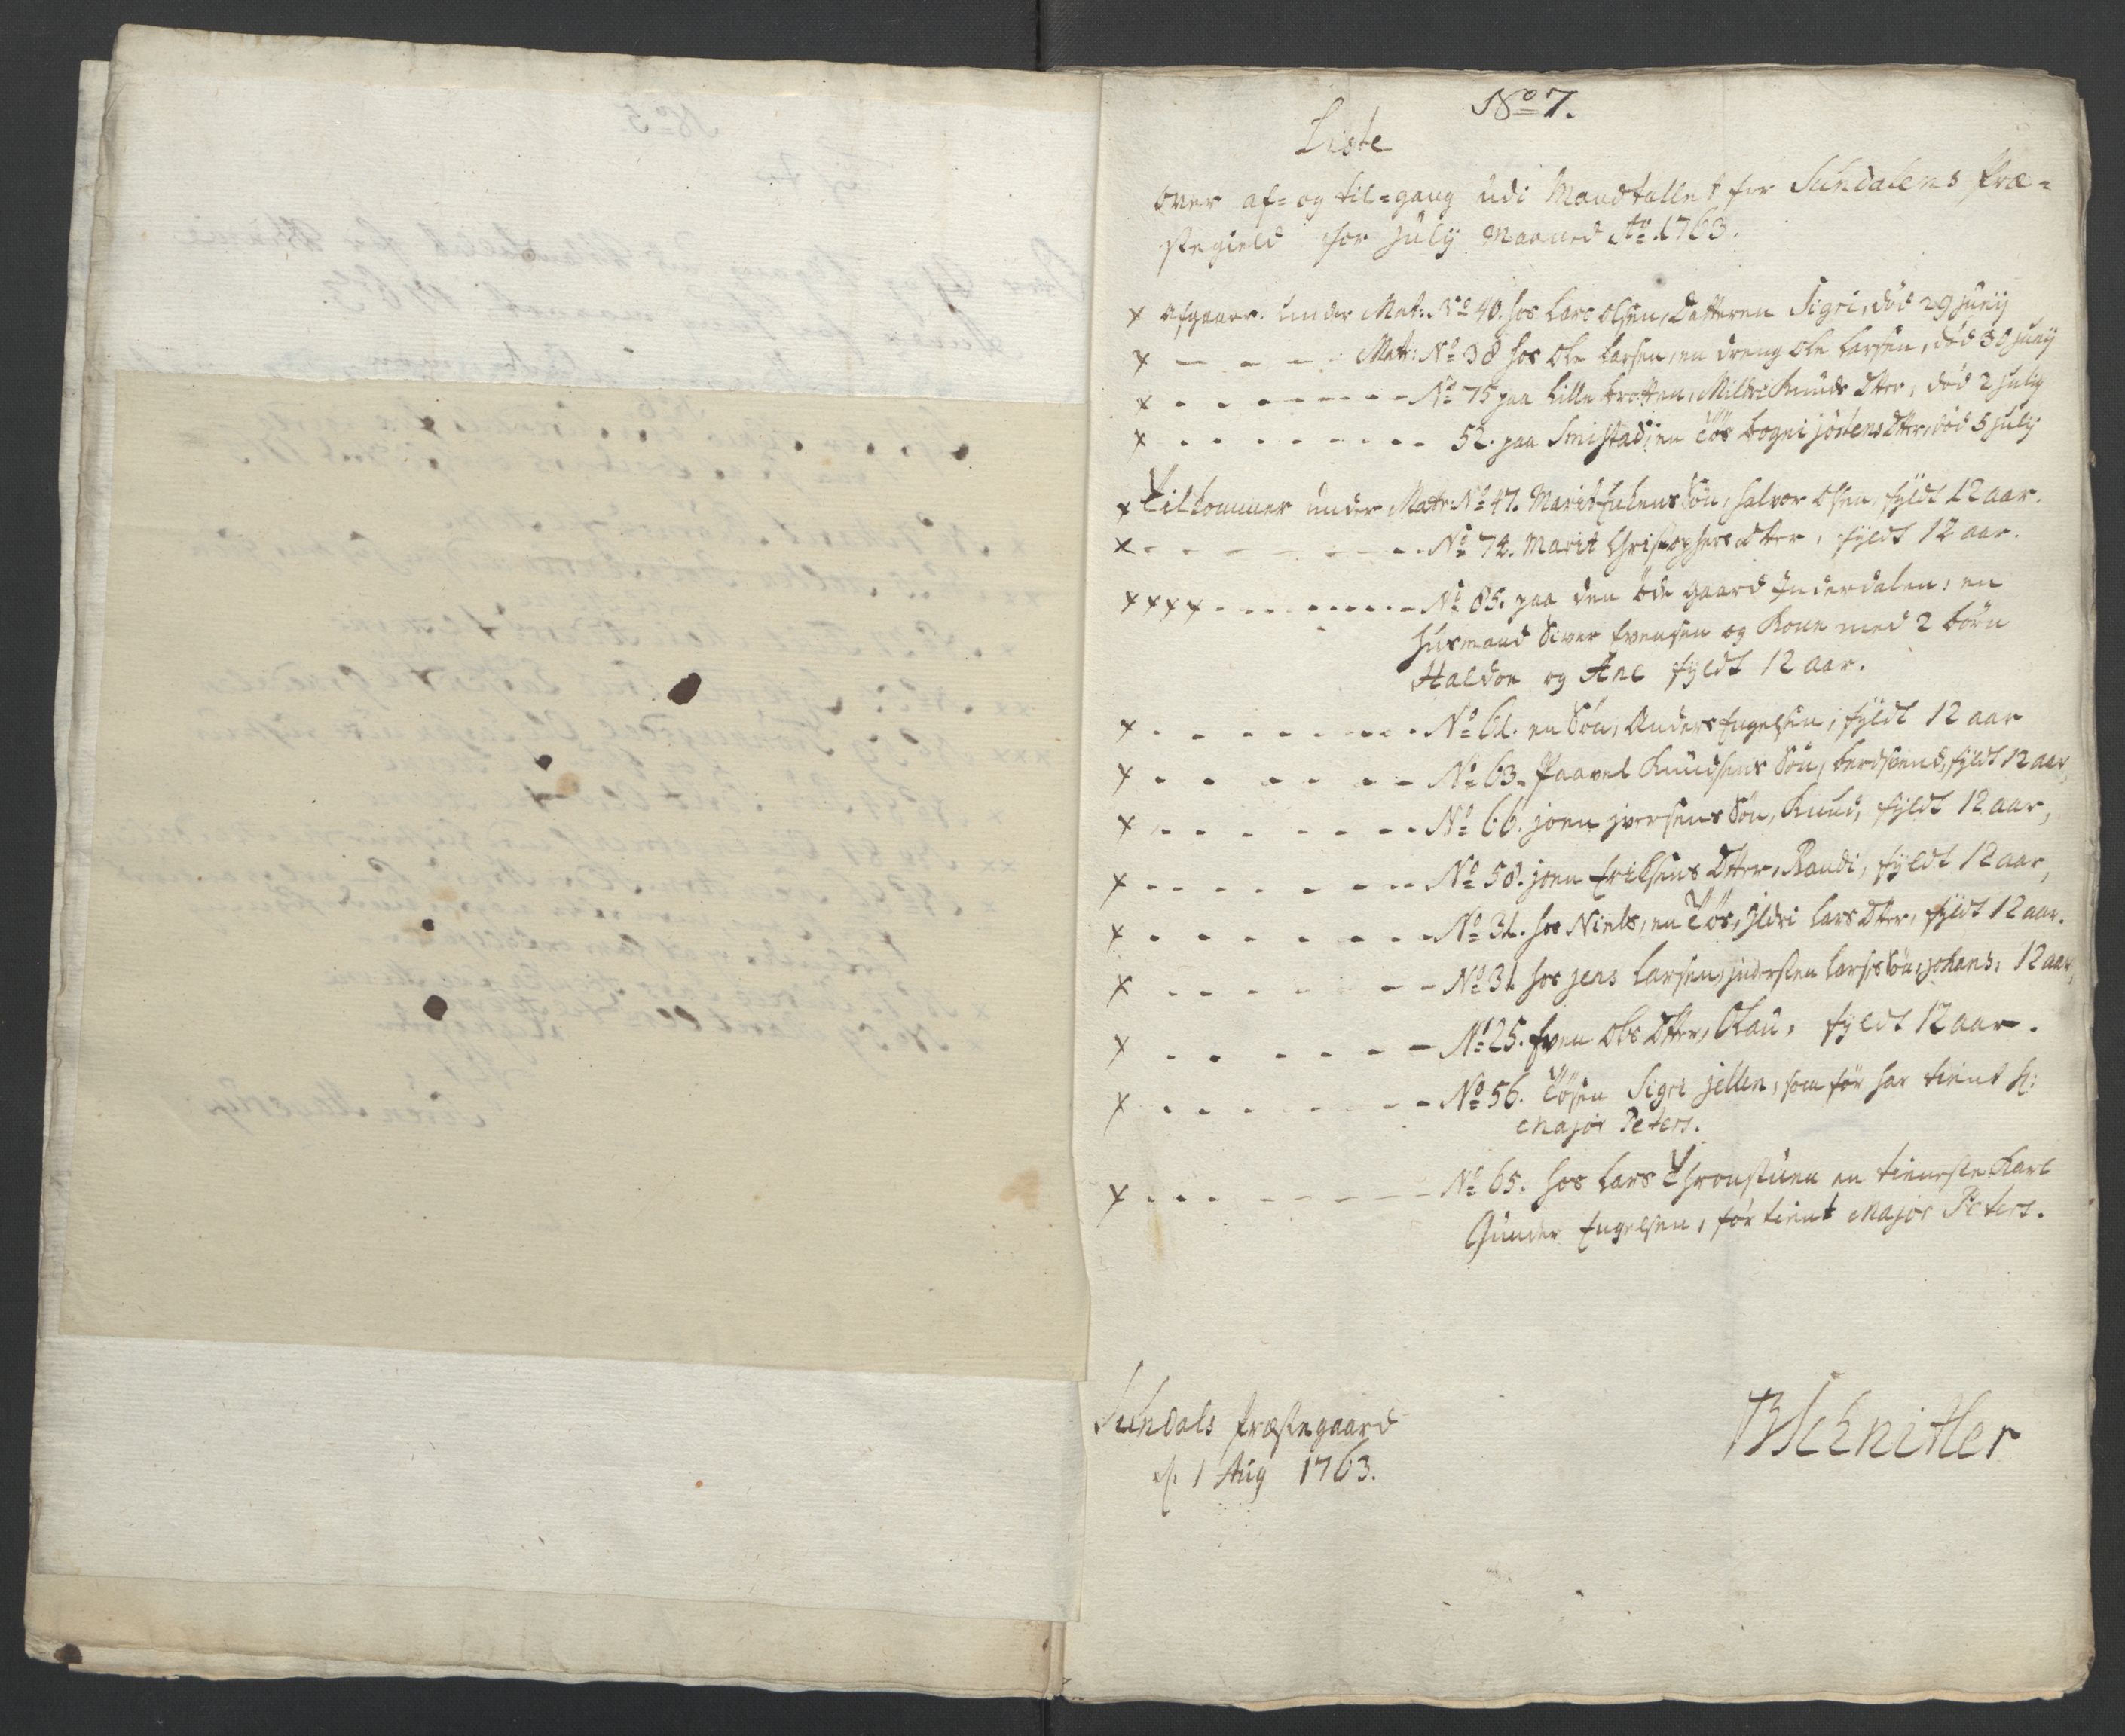 No 7.
Liste
over af- og til-gang udi Mandtallet for Sundalens Præ-
stegield for july Maaned Ao. 1763.
x Afgaaer. under Mat: No 40. hos Lars Olsen, Datteren Sigri, död 29 junij
x - - - - Matr: No 38 hos Ole Larsen, en dreng Ole Larsen, död 30 junij
x - - - - - - - - - No 75 paa Lille Trotten, Mildri Knuds Dtter, död 2 july
x - - - - - - - - - 52. paa Smistad, en Tös Bogni jöstens Dtter, död 5 july
x Tilkommer under Matr: No 47. Marit Sön, Halvor Olsen, fyldt 12 aar.
x - - - - - - - - No 74. Marit Christophers Dtter, fyldt 12 aar.
x x x x - - - - - - - - - No 85. paa den öde gaard Inderdalen, en
Husmand Siver Evensen og Kone med 2 börn
Haldor og Ane fyldt 12 aar.
x - - - - - - - - No 61. en Sön, Anders Engelsen, fyldt 12 aar
x - - - - - - - No 63. Paavel Knudsens Sön, Berdsvend, fyldt 12 aar,
x - - - - - - - - No 66. joen jversens Sön, Knud, fyldt 12 aar,
x - - - - - - - - No 58. joen Eriksens Dtter, Randi, fyldt 12 aar,
x - - - - - - - - No 31. hos Niels, en Tös, Ildri Lars Dtter, fyldt 12 aar.
x - - - - - - - No 31 hos jens Larsen, jndersten Lars's Sön, johans, 12 aar,
x - - - - - - - No 25. Even Ols Dtter, Olau, fyldt 12 aar.
x - - - - - - - No 56. Tösen Sigri jellen, som för har tient H:
Major Peters.
x - - - - - - - - - No 65. hos Lars Thronstuen en tieneste Karl
Gunder Engelsen, för tient Major Peters.
Sundals Præstegaard
d. 1 Aug 1763.
BSchnitler